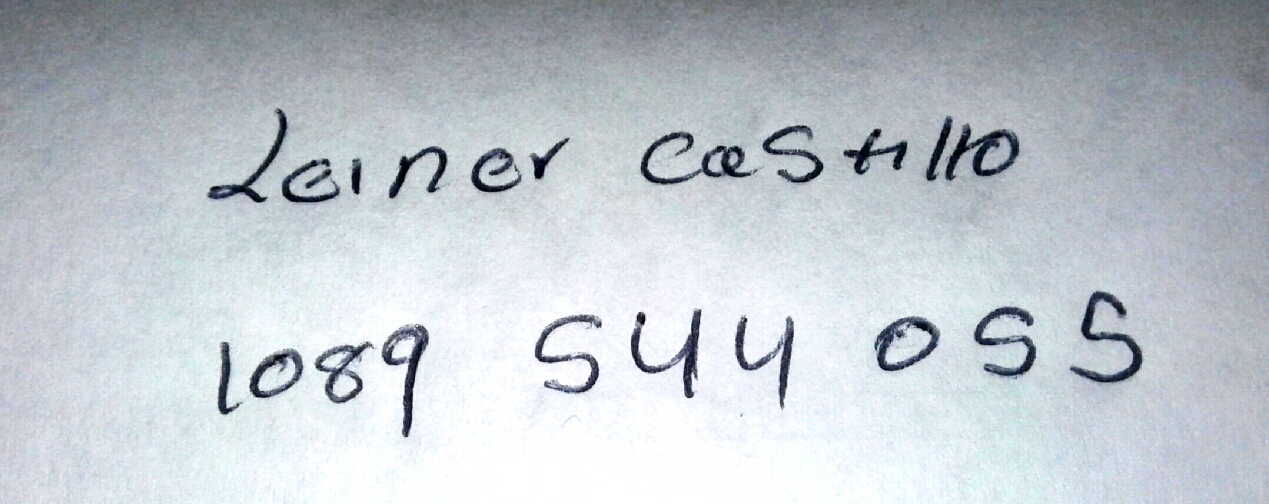 Leiner Castillo
1089 544 055